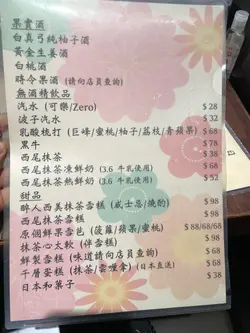 果實酒
白真弓純柚子酒
黃金生姜酒
白桃酒
時令果酒 (請向店員查詢)
無酒精飲品
汽水 (可樂/Zero) $28
波子汽水 $32
乳酸梳打 (巨峰/蜜桃/柚子/荔枝/青蘋果) $68
黑牛 $68
西尾抹茶
西尾抹茶凍鮮奶 (3.6 牛乳使用)
西尾抹茶熱鮮奶 (3.6 牛乳使用) $52
甜品
醉人西美抹茶雪糕 (威士忌/燒酌) $98
西尾抹茶雪糕
原個鮮果雪巴 (菠蘿/蘋果/蜜桃) $88/68/68
抹茶心太軟 (伴雪糕) $98
鮮製雪糕 (味道請向店員查詢)
千層蛋糕 (抹茶/雲喱拿) (日本直送)
日本和菓子 $38